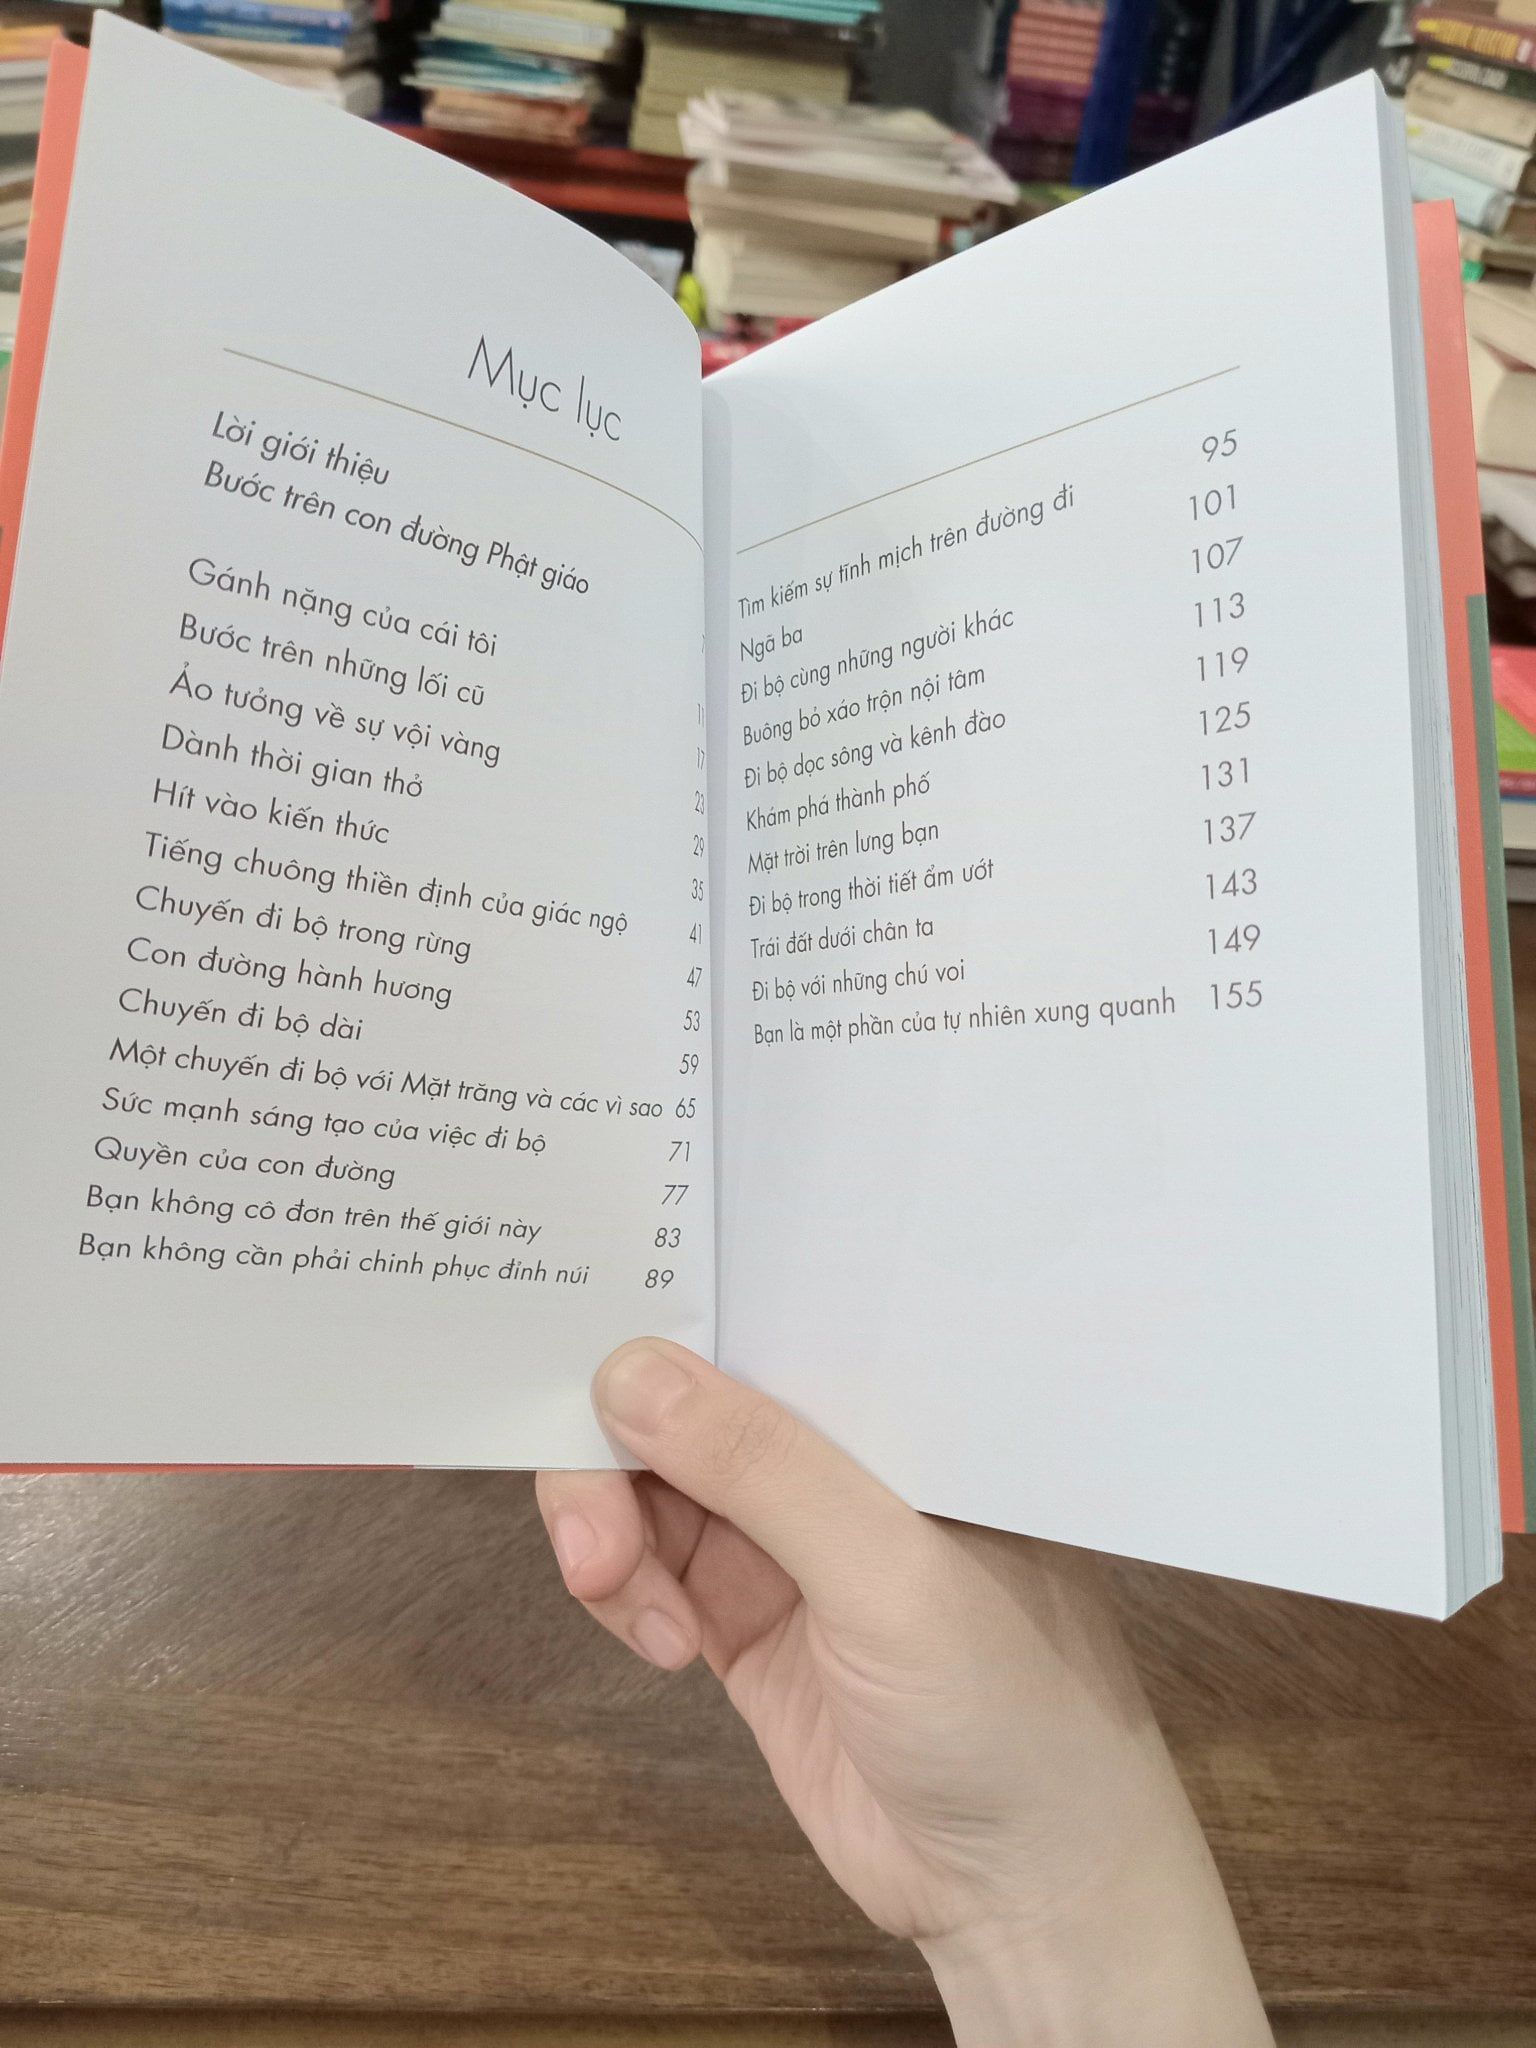 Mục lục
Lời giới thiệu
Bước trên con đường Phật giáo
Gánh nặng của cái tôi 11
Bước trên những lối cũ 17
Ảo tưởng về sự vội vàng 23
Dành thời gian thở 29
Hít vào kiến thức 35
Tiếng chuông thiền định của giác ngộ 41
Chuyến đi bộ trong rừng 47
Con đường hành hương 53
Chuyến đi bộ dài 59
Một chuyến đi bộ với Mặt trăng và các vì sao 65
Sức mạnh sáng tạo của việc đi bộ 71
Quyền của con đường 77
Bạn không cô đơn trên thế giới này 83
Bạn không cần phải chinh phục đỉnh núi 89
Tìm kiếm sự tĩnh mịch trên đường đi 95
Ngã ba 101
Đi bộ cùng những người khác 107
Buông bỏ xáo trộn nội tâm 113
Đi bộ dọc sông và kênh đào 119
Khám phá thành phố 125
Mặt trời trên lưng bạn 131
Đi bộ trong thời tiết ẩm ướt 137
Trái đất dưới chân ta 143
Đi bộ với những chú voi 149
Bạn là một phần của tự nhiên xung quanh 155